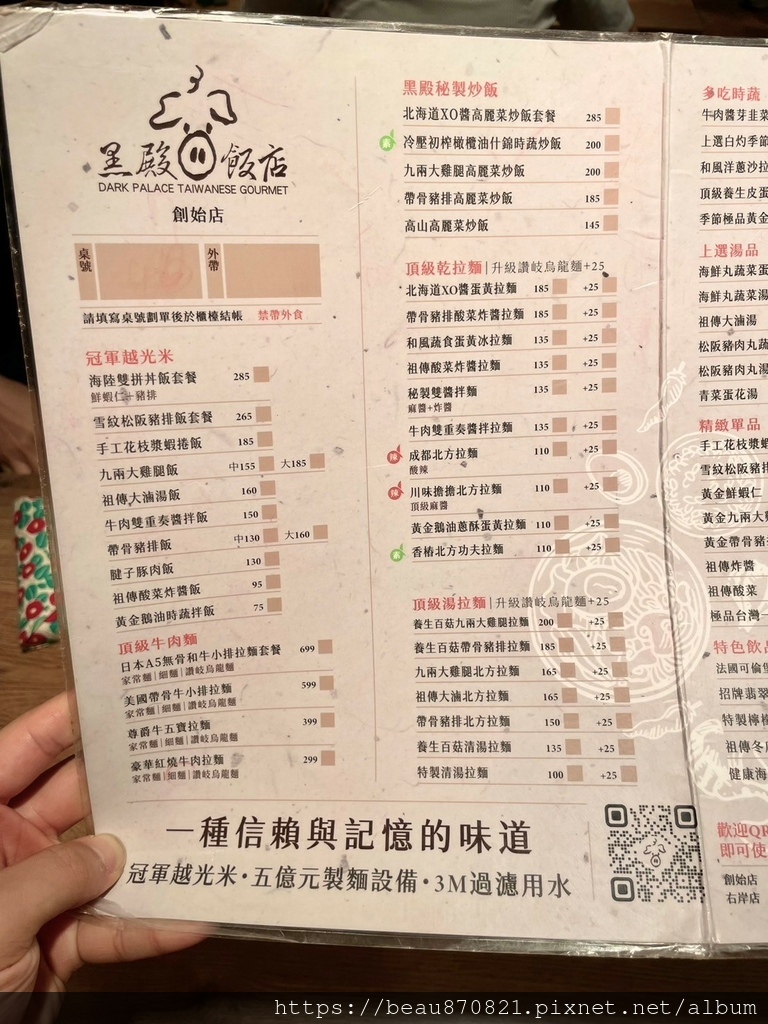 黑殿飯店
DARK PALACE TAIWANESE GOURMET
創始店
桌號
外帶
請填寫桌號劃單後於櫃檯結帳 禁帶外食
冠軍越光米
海陸雙拼丼飯套餐 285
鮮蝦仁+豬排
雪紋松阪豬排飯套餐 265
手工花枝漿蝦捲飯 185
九兩大雞腿飯 中155 大185
祖傳大滷湯飯 160
牛肉雙重奏醬拌飯 150
帶骨豬排飯 中130 大160
腱子豚肉飯 130
祖傳酸菜炸醬飯 95
黃金鵝油時蔬拌飯 75
頂級牛肉麵
日本A5無骨和牛小排拉麵套餐 699
家常麵|細麵|讚岐烏龍麵
美國帶骨牛小排拉麵 599
家常麵|細麵|讚岐烏龍麵
尊爵牛五寶拉麵 399
家常麵|細麵|讚岐烏龍麵
豪華紅燒牛肉拉麵 299
家常麵|細麵|讚岐烏龍麵
黑殿秘製炒飯
北海道XO醬高麗菜炒飯套餐 285
素 冷壓初榨橄欖油什錦時蔬炒飯 200
九兩大雞腿高麗菜炒飯 200
帶骨豬排高麗菜炒飯 185
高山高麗菜炒飯 145
頂級乾拉麵|升級讚岐烏龍麵+25
北海道XO醬蛋黃拉麵 185 +25
帶骨豬排酸菜炸醬拉麵 185 +25
和風蔬食蛋黃冰拉麵 135 +25
祖傳酸菜炸醬拉麵 135 +25
秘製雙醬拌麵 135 +25
麻醬+炸醬
牛肉雙重奏醬拌拉麵 135 +25
辣 成都北方拉麵 110 +25
酸辣
辣 川味擔擔北方拉麵 110 +25
頂級麻醬
黃金鵝油蔥酥蛋黃拉麵 110 +25
素 香椿北方功夫拉麵 110 +25
頂級湯拉麵|升級讚岐烏龍麵+25
養生百菇九兩大雞腿拉麵 200 +25
養生百菇帶骨豬排拉麵 185 +25
九兩大雞腿北方拉麵 165 +25
祖傳大滷北方拉麵 165 +25
帶骨豬排北方拉麵 150 +25
養生百菇清湯拉麵 135 +25
特製清湯拉麵 100 +25
一種信賴與記憶的味道
冠軍越光米·五億元製麵設備·3M過濾用水
多吃時蔬
牛肉醬芽韭菜
上選白灼季節
和風洋蔥沙拉
頂級養生皮蛋
季節極品黃金
上選湯品
海鮮丸蔬菜蛋
海鮮丸蔬菜湯
祖傳大滷湯
松阪豬肉丸蔬
松阪豬肉丸湯
青菜蛋花湯
精緻單品
手工花枝漿蝦
雪紋松阪豬
黃金鮮蝦仁
黃金九兩大
黃金帶骨豬
祖傳炸醬
祖傳酸菜
極品台灣
特色飲品
法國可倫堡
招牌翡翠
特製檸檬
祖傳冬瓜
健康海
歡迎QR
即可使
創始店
右岸店
https://beau870821.pixnet.net/album